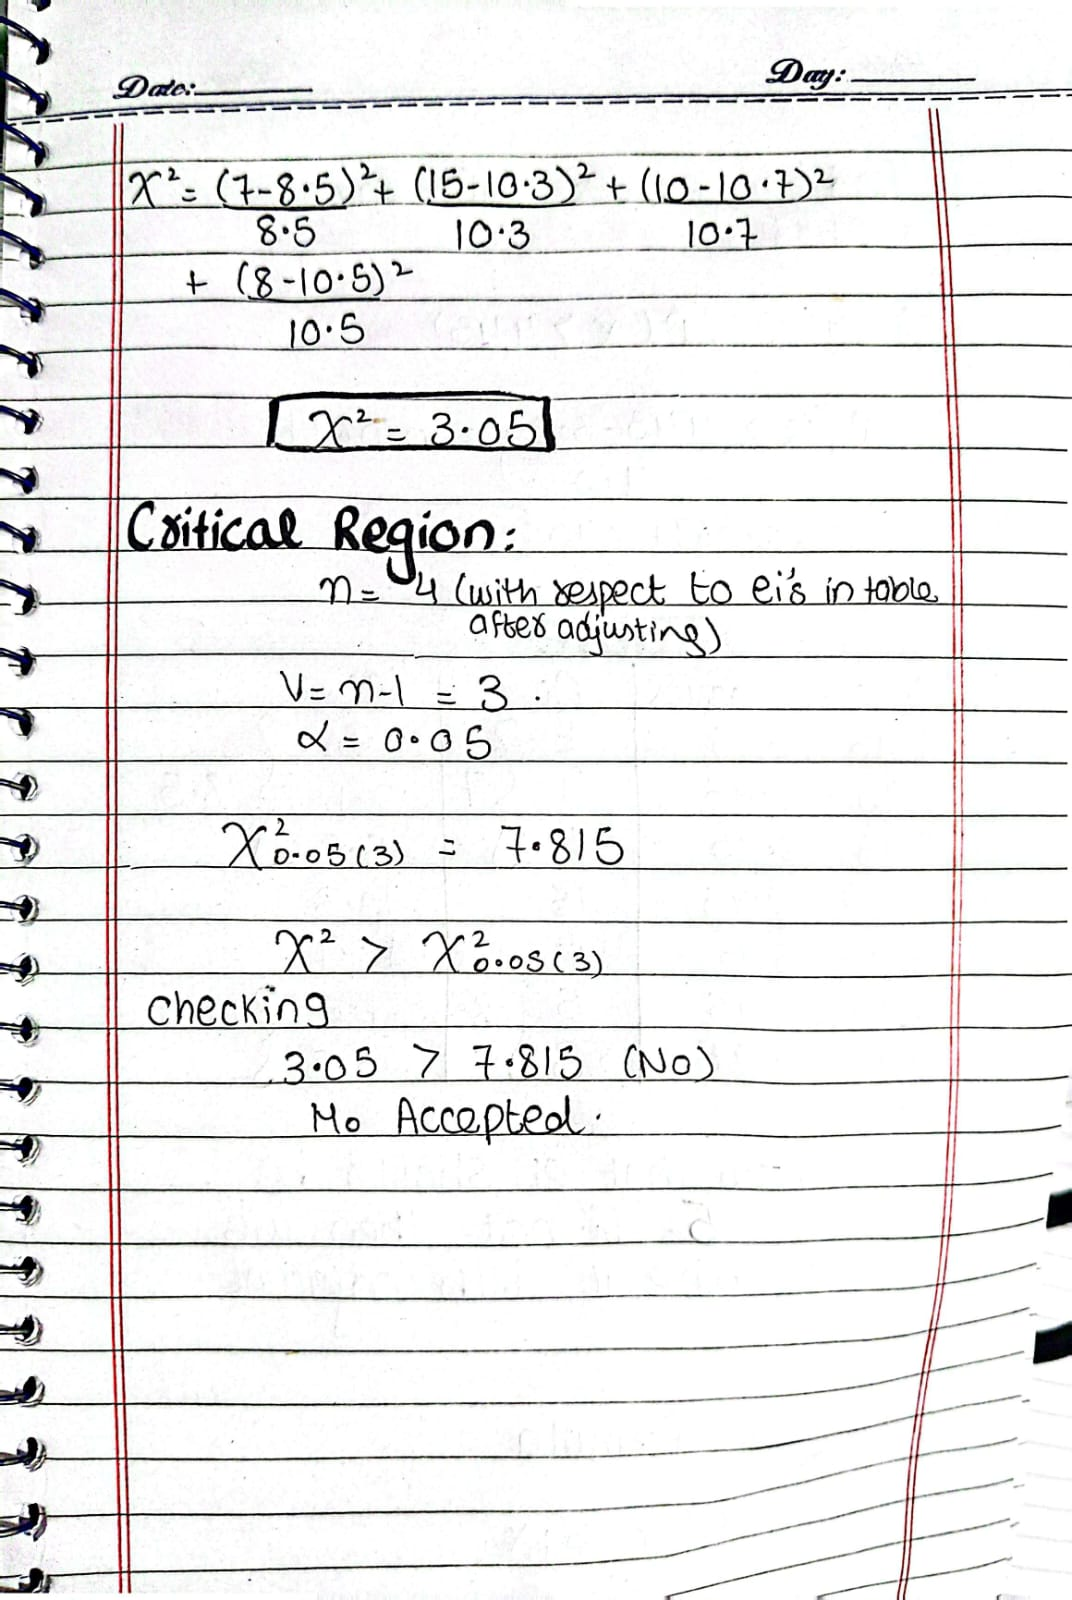 Date:
Day:
χ² = (7-8.5)²/8.5 + (15-10.3)²/10.3 + (10-10.7)²/10.7
+ (8-10.5)²/10.5
χ² = 3.05
Critical Region:
n = 4 (with respect to ei's in table
after adjusting)
V = n-1 = 3.
α = 0.05
χ²0.05(3) = 7.815
χ² > χ²0.05(3)
Checking
3.05 > 7.815 (NO)
Ho Accepted.